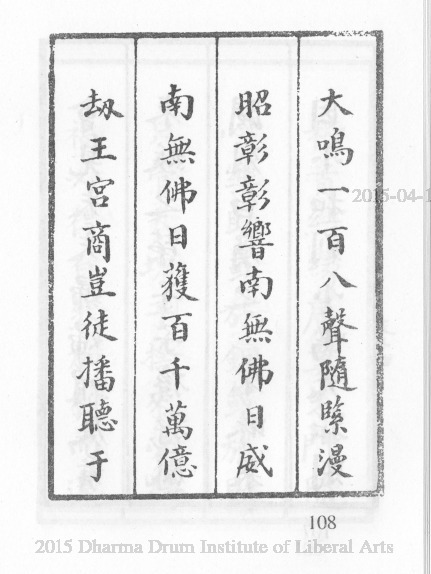 大鳴一百八聲隨緊漫
昭彰彰響南無佛日威
南無佛日獲百千萬億
刼王宮商豈徒播聽于
108
2015-04-1
2015 Dharma Drum Institute of Liberal Arts